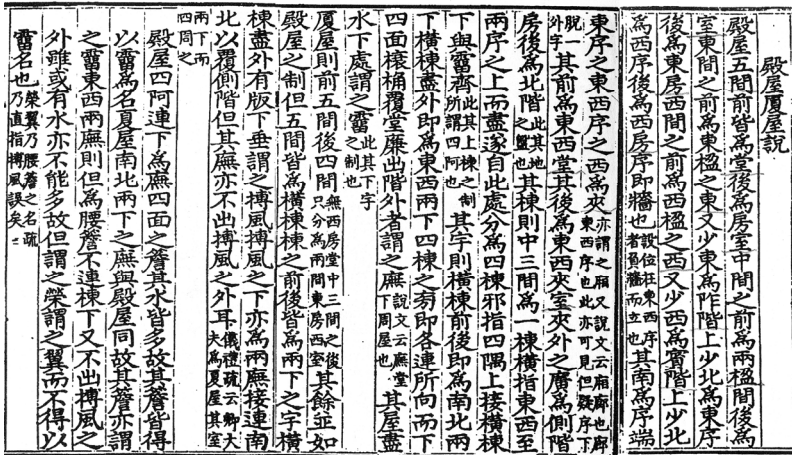 殿屋廈屋說
殿屋五間前皆爲堂後爲房室中間之前爲兩楹間後爲
室東間之前爲東楹之東又少東爲阼階上少北爲東序
後爲東房西間之前爲西楹之西又少西爲賓階上少北
爲西序後爲西房序即牆也設位在東西序者負牆而立也其南爲序端
東序之東西序之西爲夾亦謂之廂又說文云廂廊也廊東西序也此亦可見但疑序下
脫一外字其前爲東西堂其後爲東西夾室夾外之廣爲側階
房後爲北階此其地之盤也其棟則中三間爲一棟橫指東西至
兩序之上而盡遂自此處分爲四棟邪指四隅上接橫棟
下與霤齊此其上棟之制所謂四阿也其宇則橫棟前後即爲南北兩
下橫棟盡外即爲東西兩下四棟之旁即各連所向而下
四面榱桷覆堂廉出階外者謂之廡說文云廡堂下周屋也其屋盡
水下處謂之霤此其下宇之制也
廈屋則前五間後四間無西房堂中三間之後只分爲兩間東房西室其餘並如
殿屋之制但五間皆爲橫棟棟之前後皆爲兩下之宇橫
棟盡外有版下垂謂之搏風搏風之下亦爲兩廡接連南
北以覆側階但其廡亦不出搏風之外耳儀禮疏云卿大夫爲夏屋其室
兩下而四周之
殿屋四阿連下爲廡四面之簷其水皆多故其簷皆得
以霤爲名夏屋南北兩下之廡與殿屋同故其簷亦謂
之霤東西兩廡則但爲腰簷不連棟下又不出搏風之
外雖或有水亦不能多故但謂之榮謂之翼而不得以
霤名也榮翼乃腰簷之名疏乃直指搏風誤矣